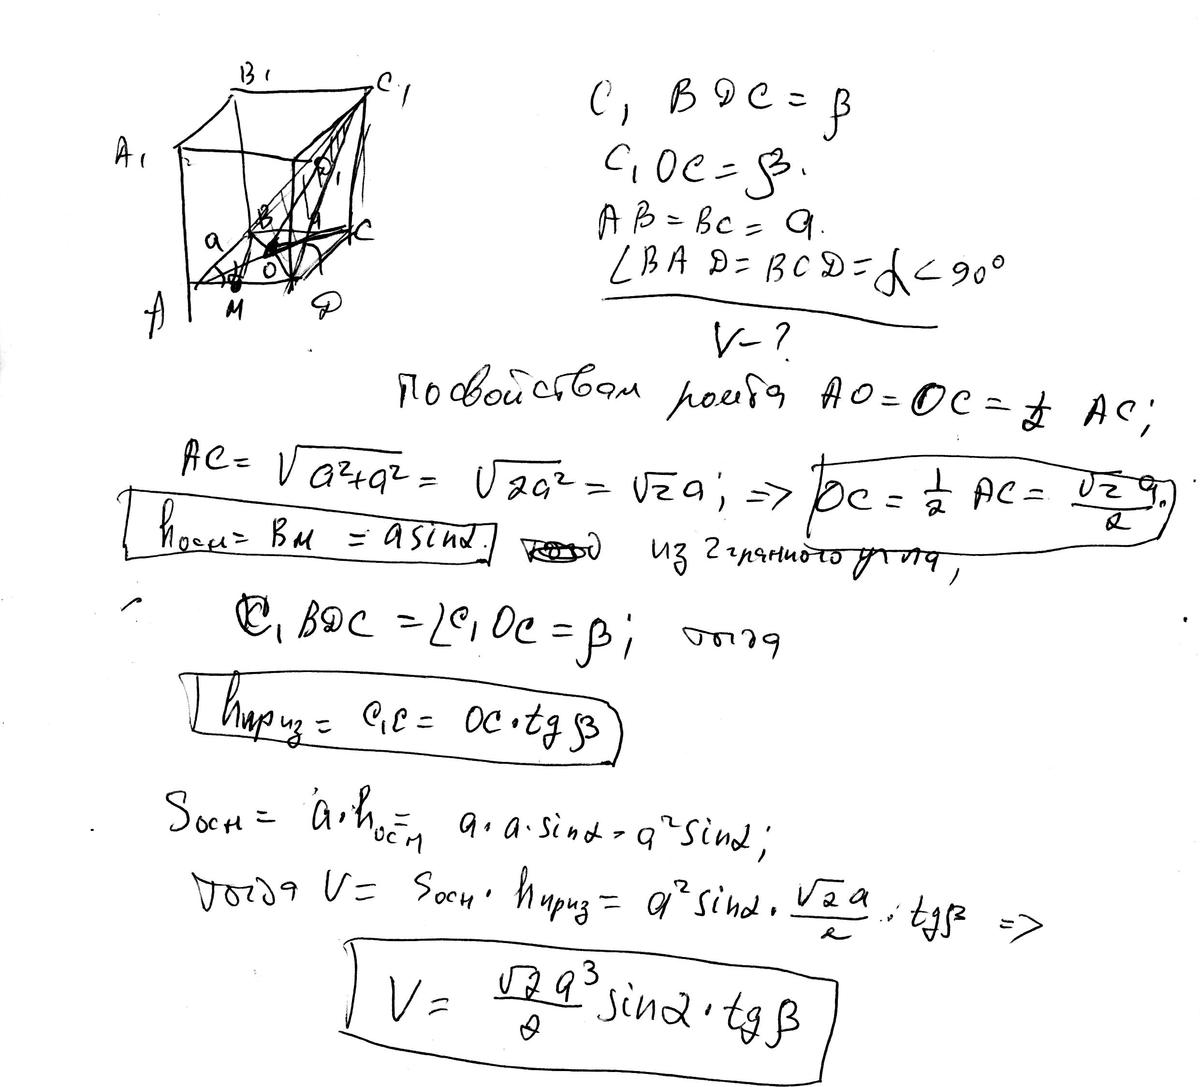 B₁
C₁
A₁
D₁
a
B
C
O
α
A
M
D
C₁ BDC = β
C₁OC = β.
AB = BC = a.
∠BAD = BCD = α < 90°
V - ?
По свойствам ромба AO = OC = 1/2 AC;
AC = √(a² + a²) = √(2a²) = √2 a; => OC = 1/2 AC = √2 a/2.
hосн = BM = a sin α. из 2гранного угла,
C₁BDC = ∠C₁OC = β; тогда
hприз = C₁C = OC · tg β
Sосн = a · hосн = a · a · sin α = a² sin α;
тогда V = Sосн · hприз = a² sin α · √2 a/2 · tg β =>
V = √2 a³/2 sin α · tg β